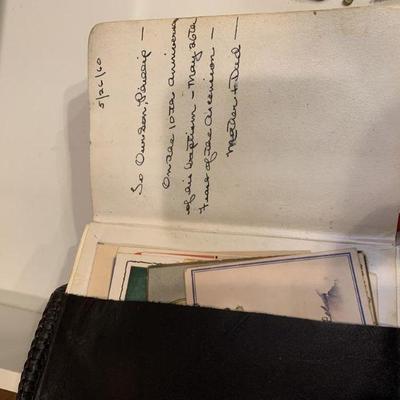 5/26/60
To Our son, Philip —
On the 10th anniversary
of his baptism - May 26th
Feast of the Ascension —
Mother & Dad —